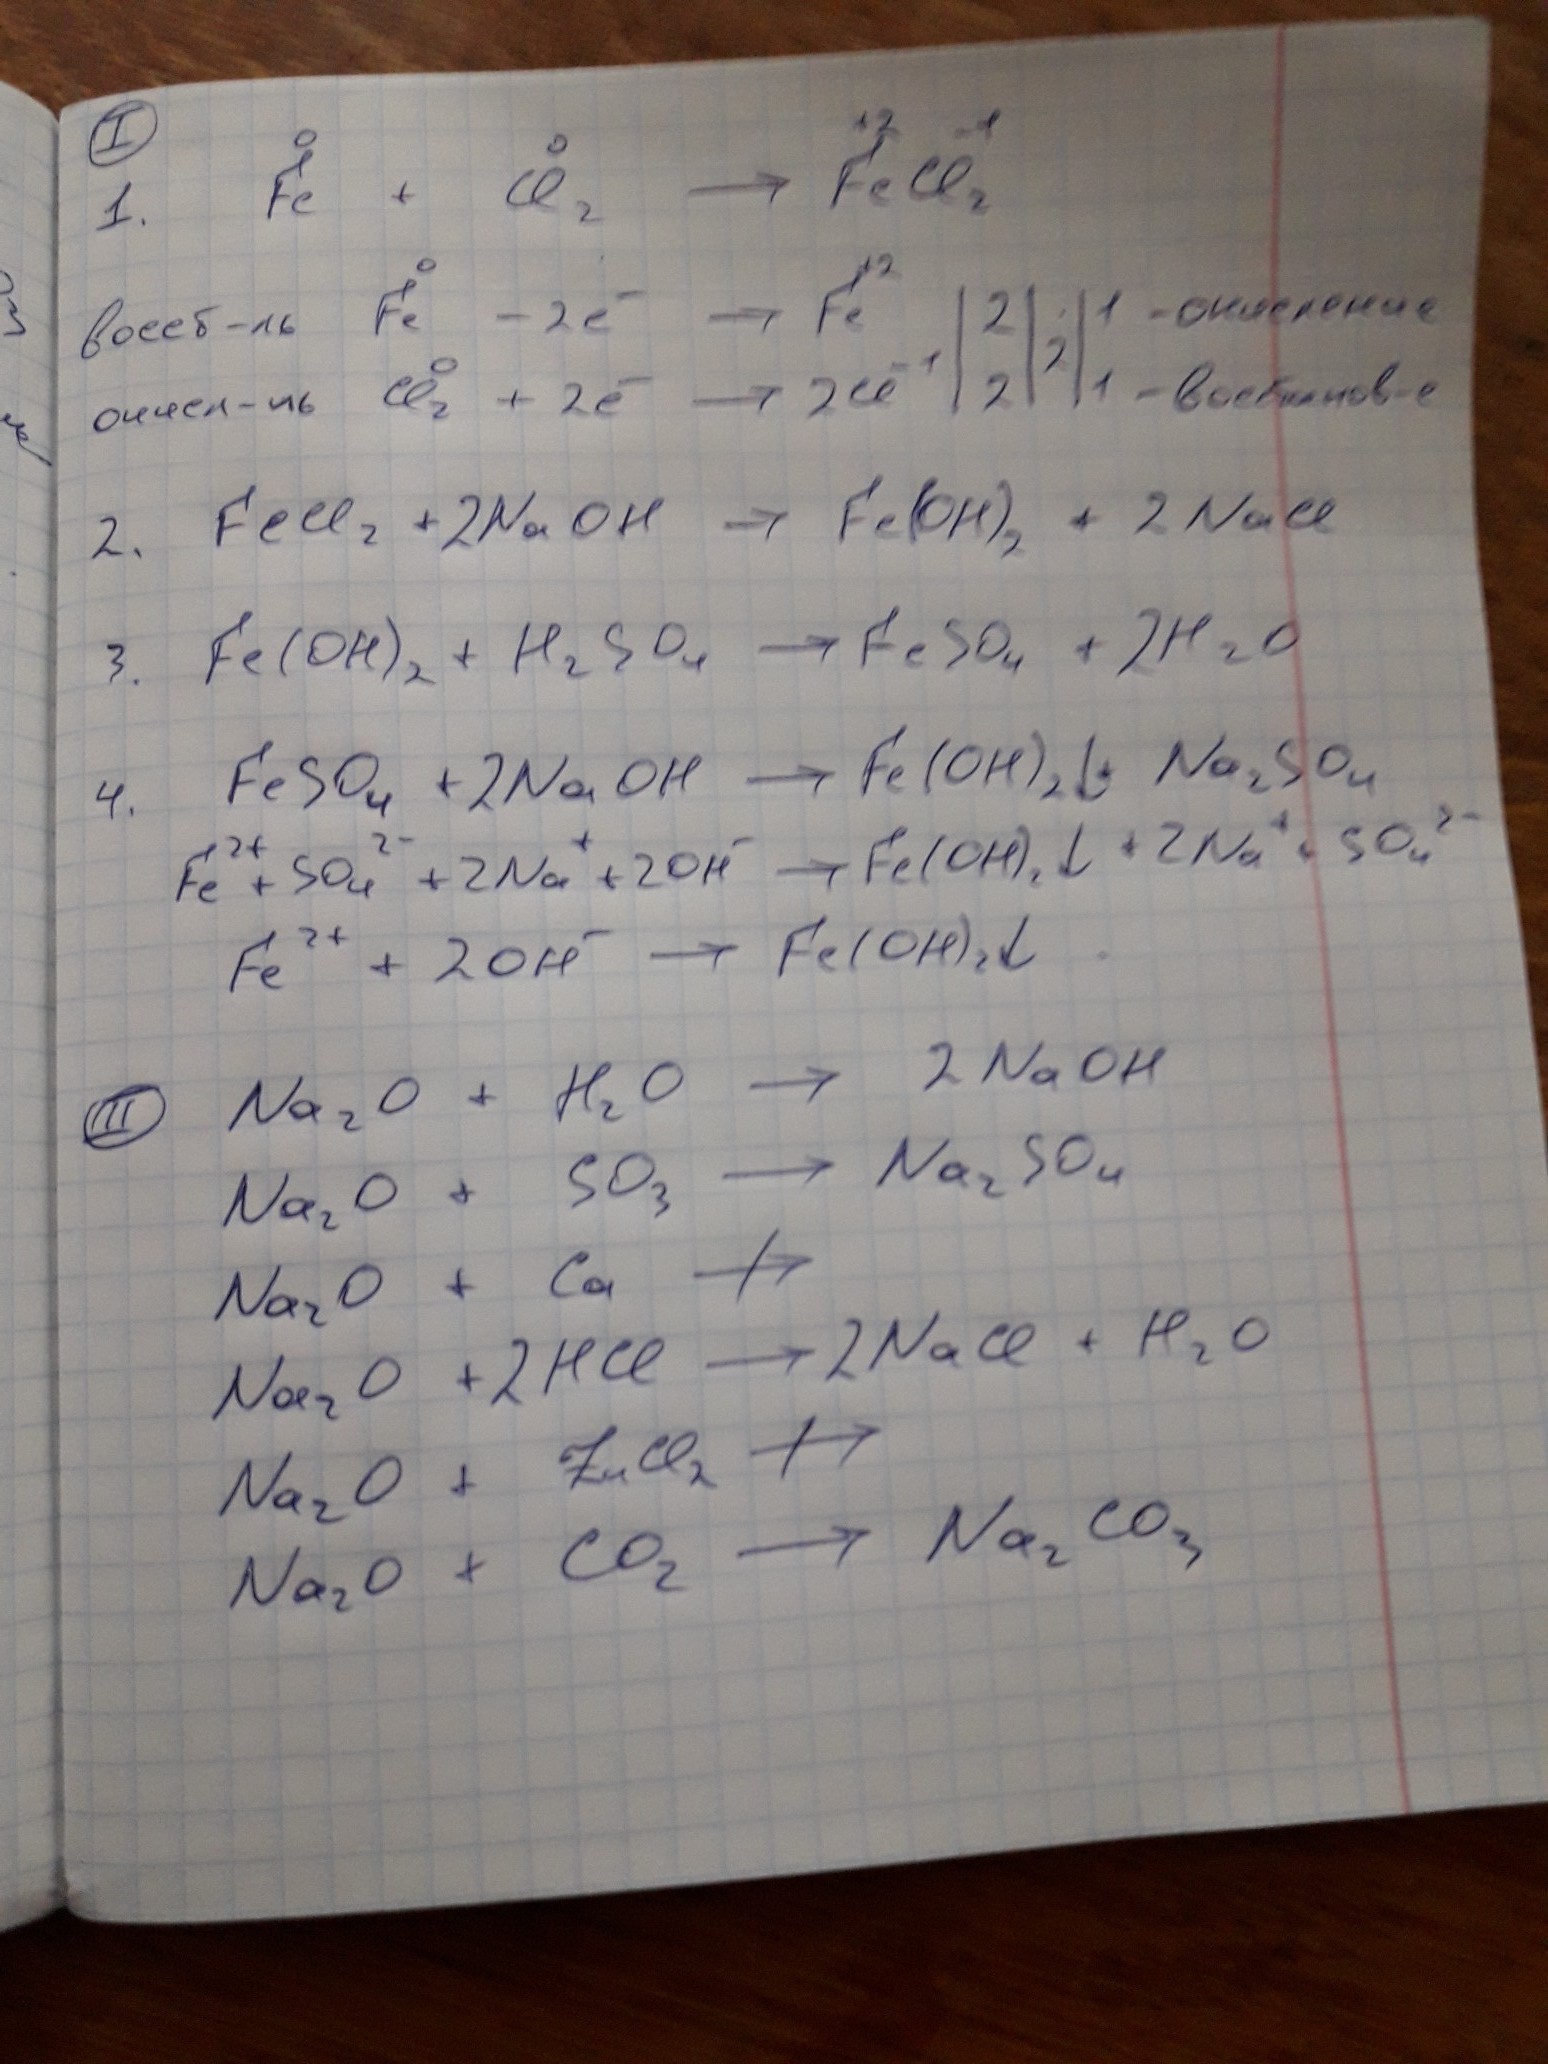 I
0 0 +2 -1
1. Fe + Cl₂ → FeCl₂
восст-ль Fe⁰ - 2e⁻ → Fe⁺² | 2 | | 1 - окисление
2
окисл-ль Cl₂⁰ + 2e⁻ → 2Cl⁻¹ | 2 | | 1 - восстанов-е
2. FeCl₂ + 2NaOH → Fe(OH)₂ + 2NaCl
3. Fe(OH)₂ + H₂SO₄ → FeSO₄ + 2H₂O
4. FeSO₄ + 2NaOH → Fe(OH)₂↓ + Na₂SO₄
Fe²⁺ + SO₄²⁻ + 2Na⁺ + 2OH⁻ → Fe(OH)₂↓ + 2Na⁺ + SO₄²⁻
Fe²⁺ + 2OH⁻ → Fe(OH)₂↓
III Na₂O + H₂O → 2NaOH
Na₂O + SO₃ → Na₂SO₄
Na₂O + Ca ↛
Na₂O + 2HCl → 2NaCl + H₂O
Na₂O + ZnCl₂ ↛
Na₂O + CO₂ → Na₂CO₃